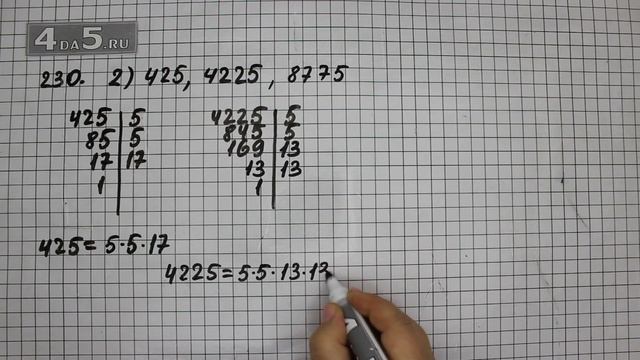 4DA5.RU
230. 2) 425, 4225, 8775
425 | 5
85 | 5
17 | 17
1
4225 | 5
845 | 5
169 | 13
13 | 13
1
425 = 5·5·17
4225 = 5·5·13·13